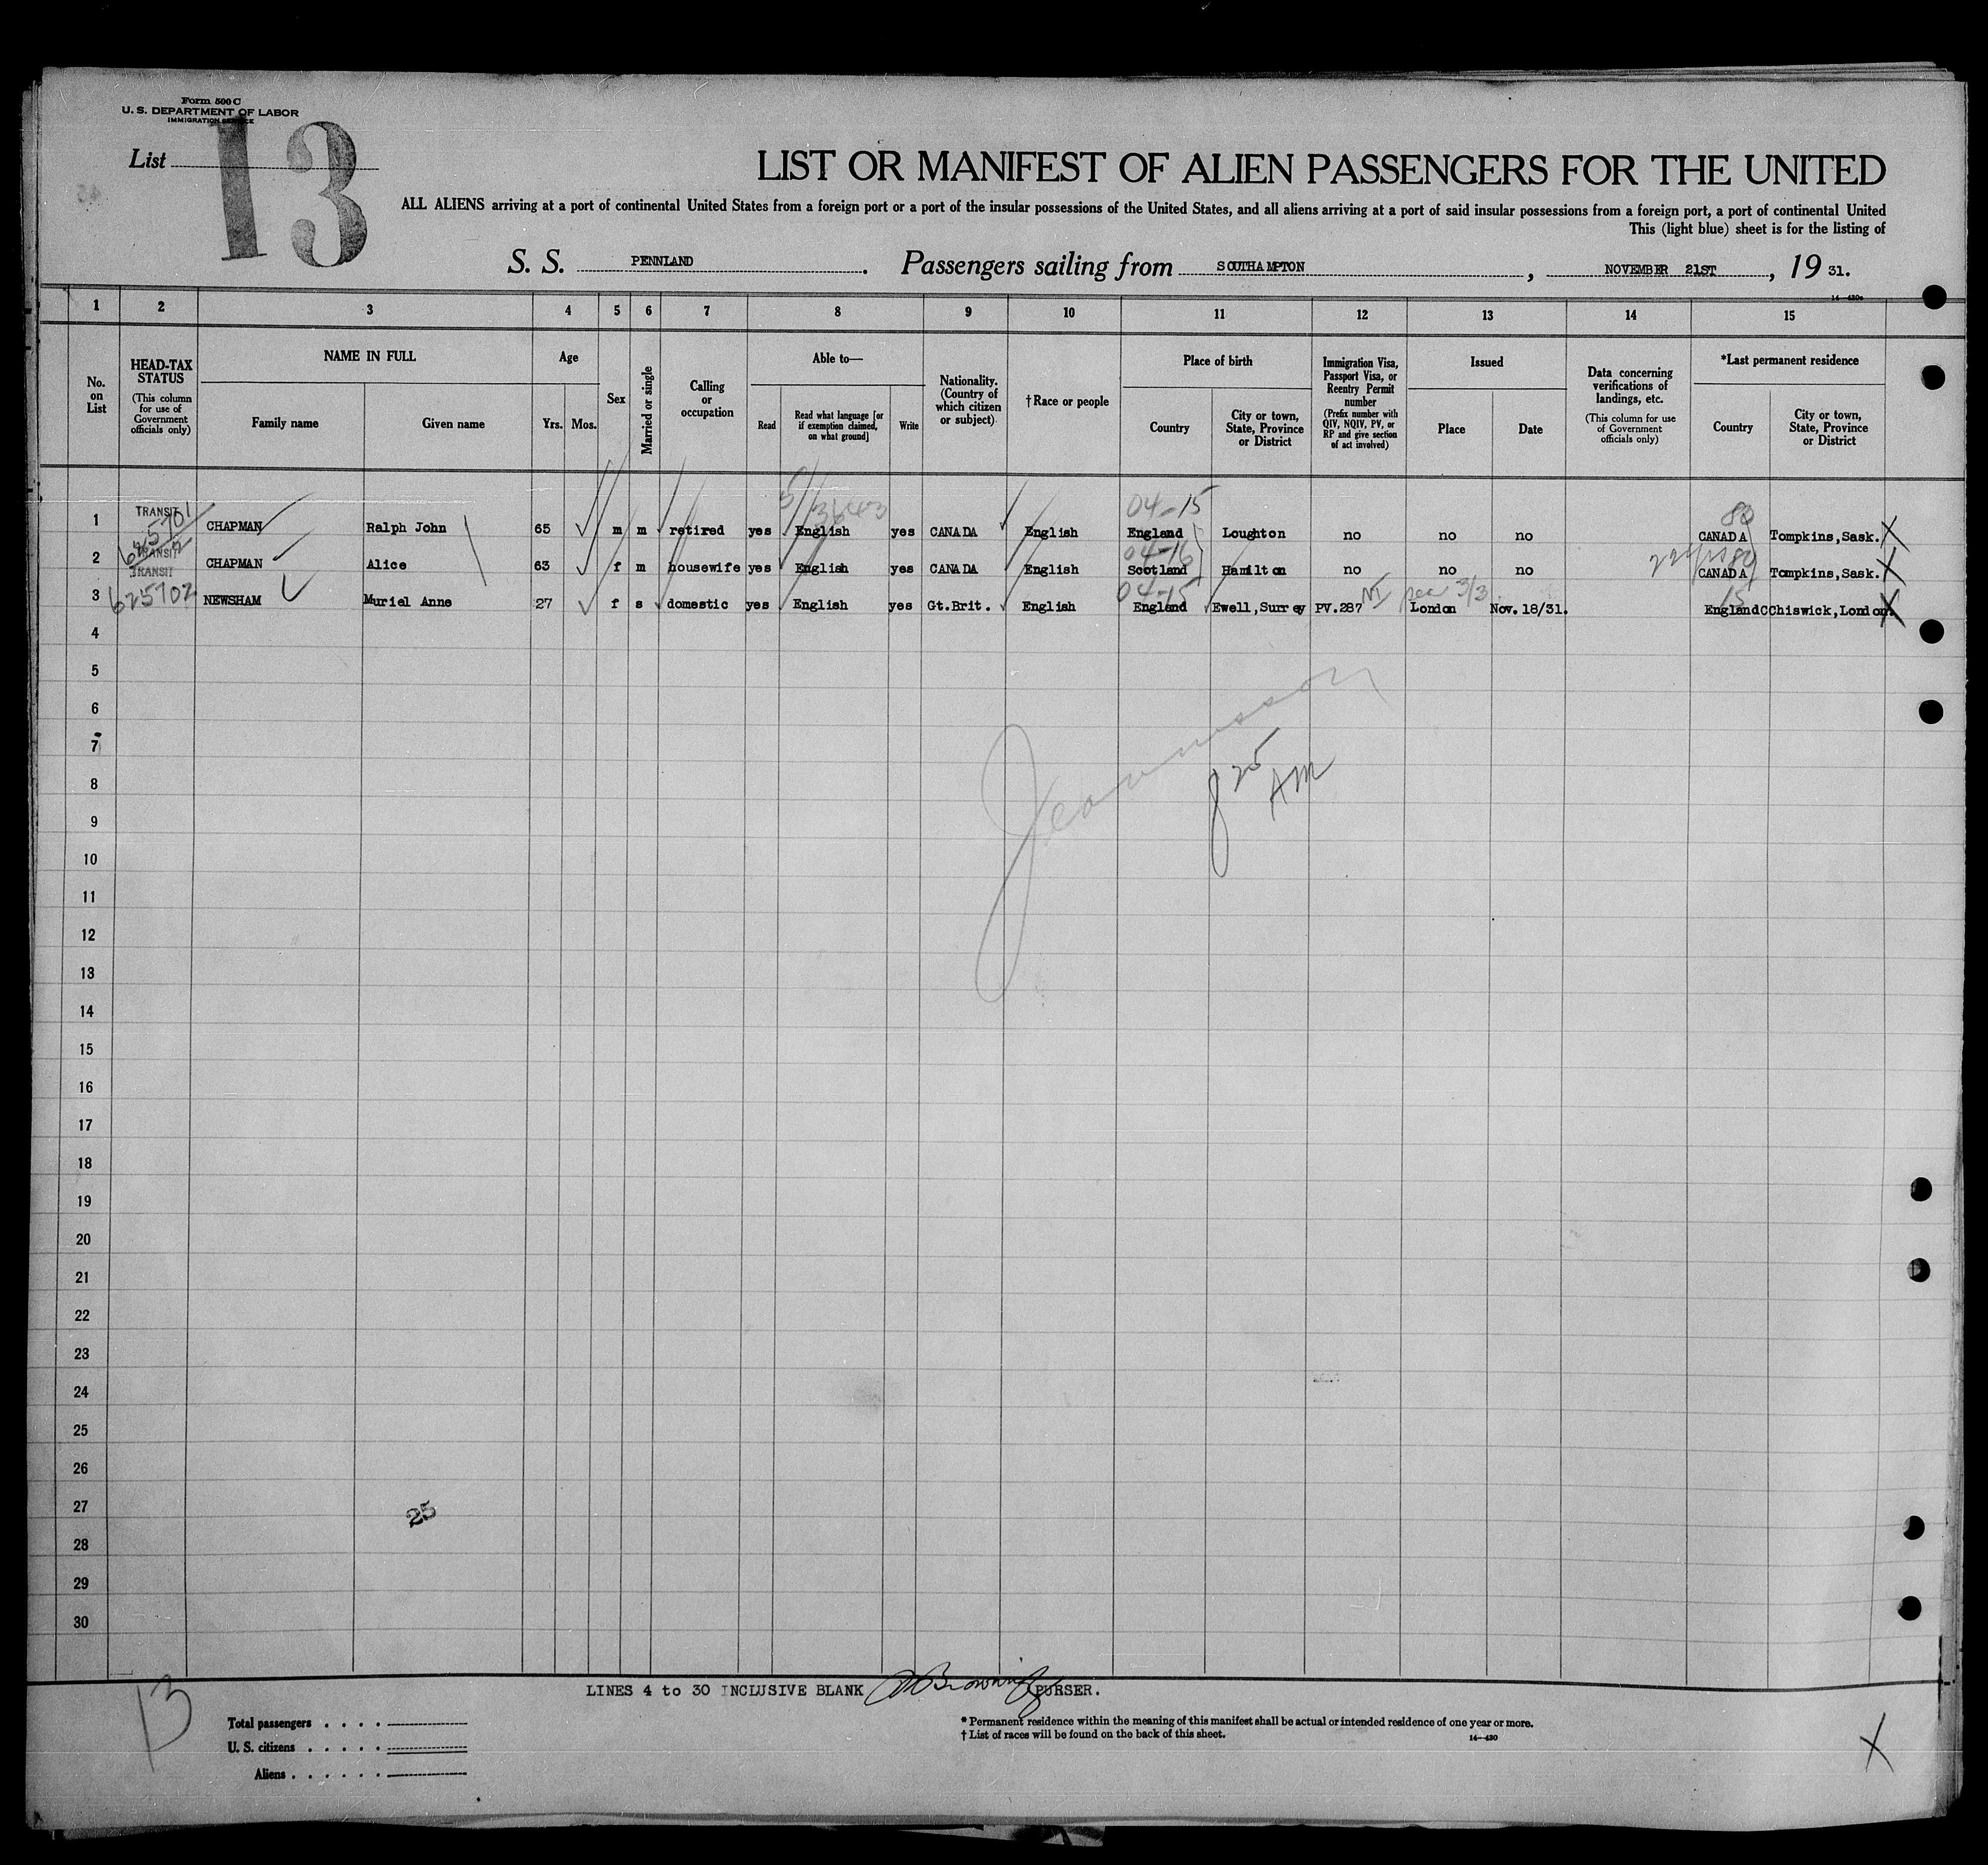 Form 500 C
U. S. DEPARTMENT OF LABOR
IMMIGRATION SERVICE
List 13
LIST OR MANIFEST OF ALIEN PASSENGERS FOR THE UNITED
ALL ALIENS arriving at a port of continental United States from a foreign port or a port of the insular possessions of the United States, and all aliens arriving at a port of said insular possessions from a foreign port, a port of continental United
This (light blue) sheet is for the listing of
S. S. PENNLAND. Passengers sailing from SOUTHAMPTON, NOVEMBER 21ST, 19 31.
14—430c
1 2 3 4 5 6 7 8 9 10 11 12 13 14 15
No. on List
HEAD-TAX STATUS (This column for use of Government officials only)
NAME IN FULL
Family name Given name
Age
Yrs. Mos.
Sex
Married or single
Calling or occupation
Able to—
Read Read what language [or if exemption claimed, on what ground] Write
Nationality. (Country of which citizen or subject)
†Race or people
Place of birth
Country City or town, State, Province or District
Immigration Visa, Passport Visa, or Reentry Permit number (Prefix number with QIV, NQIV, PV, or RP and give section of act involved)
Issued
Place Date
Data concerning verifications of landings, etc. (This column for use of Government officials only)
*Last permanent residence
Country City or town, State, Province or District
04-15 80
1 TRANSIT CHAPMAN Ralph John 65 m m retired yes English yes CANADA English England Loughton no no no CANADA Tompkins,Sask. X
04-16 80
2 TRANSIT CHAPMAN Alice 63 f m housewife yes English yes CANADA English Scotland Hamilton no no no CANADA Tompkins,Sask. X
TRANSIT 04-15 3/3 15
3 625702 NEWSHAM Muriel Anne 27 f s domestic yes English yes Gt.Brit. English England Ewell,Surrey PV.287 London Nov.18/31. EnglandCChiswick,London. X
4
5
6
7
8 8 25 AM
9
10
11
12
13
14
15
16
17
18
19
20
21
22
23
24
25
26
27 25
28
29
30
13
LINES 4 to 30 INCLUSIVE BLANK Browning PURSER.
Total passengers . . . .
U. S. citizens . . . . .
Aliens . . . . . .
* Permanent residence within the meaning of this manifest shall be actual or intended residence of one year or more.
† List of races will be found on the back of this sheet.
14—430
X